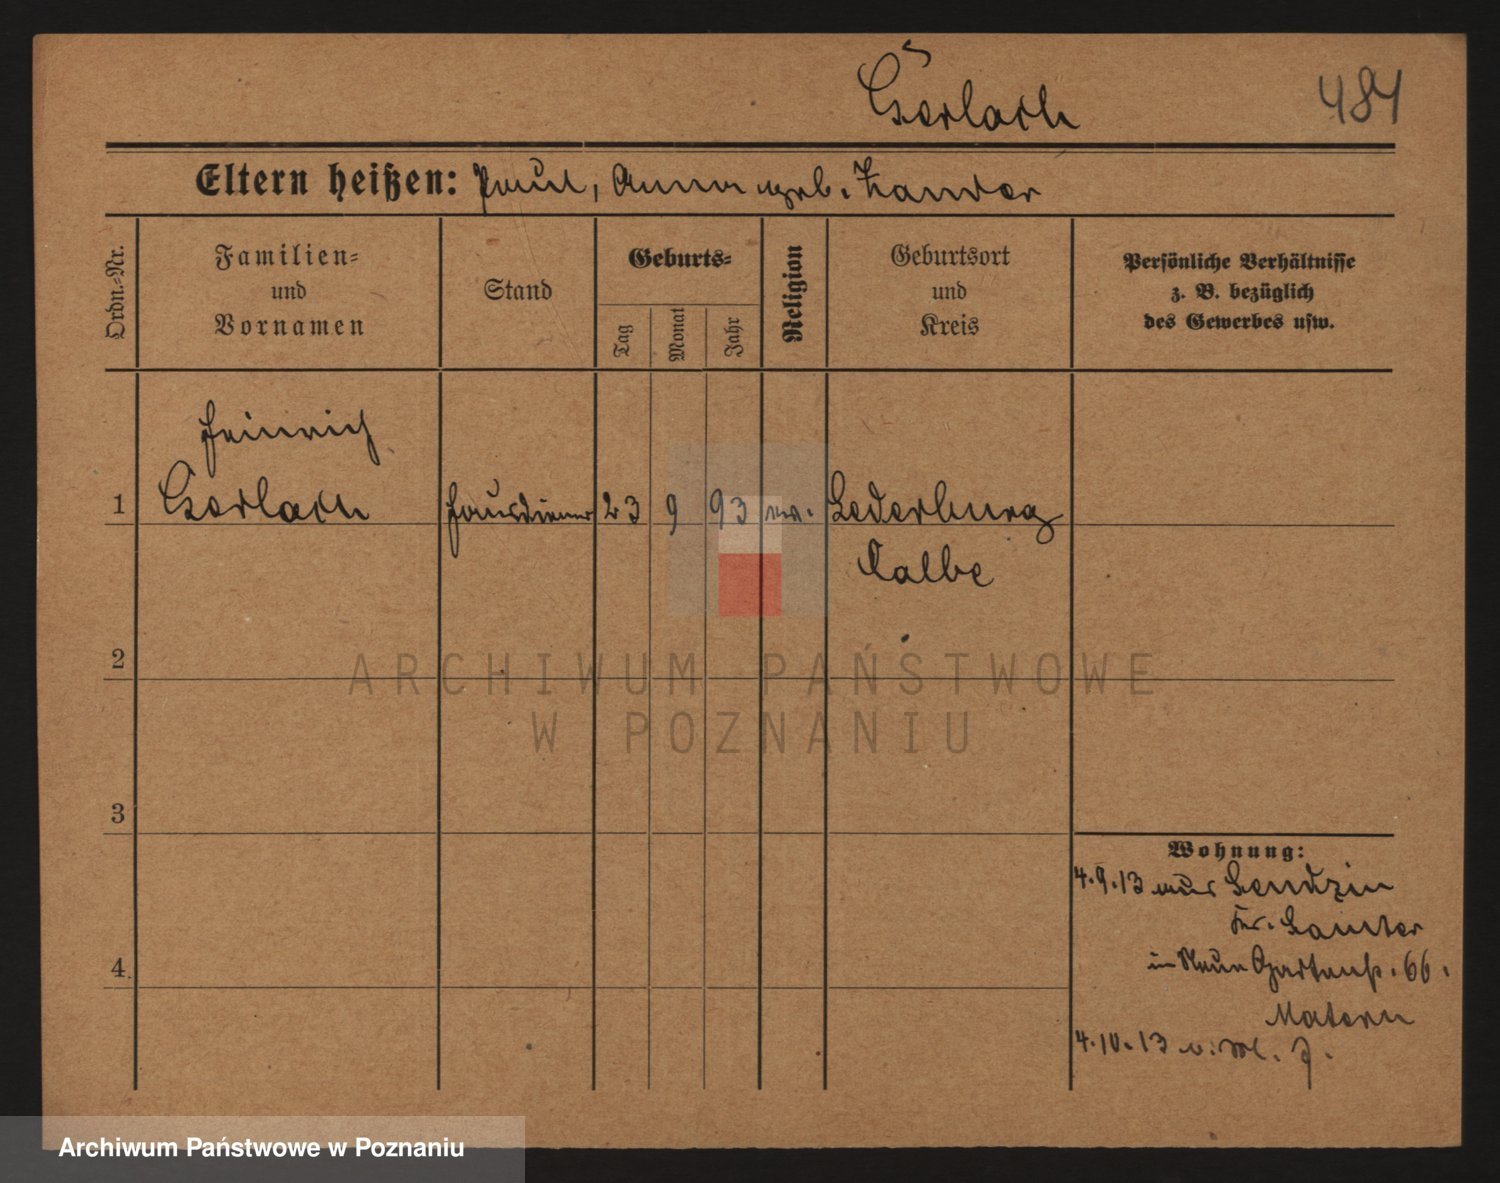 Gerlach
484
Eltern heißen: Paul, Anna geb. Zander
Ordn.-Nr.
Familien-
und
Vornamen
Stand
Geburts-
Tag
Monat
Jahr
Religion
Geburtsort
und
Kreis
Persönliche Verhältnisse
z. B. bezüglich
des Gewerbes usw.
Heinrich
1 Gerlach Hausdiener 23 9 93 ev. Lederburg
Calbe
2
ARCHIWUM PAŃSTWOWE
W POZNANIU
3
Wohnung:
4.9.13 aus
Kr. Samter
4
in Neue Gartenstr. 66.
Matern
4.10.13
Archiwum Państwowe w Poznaniu